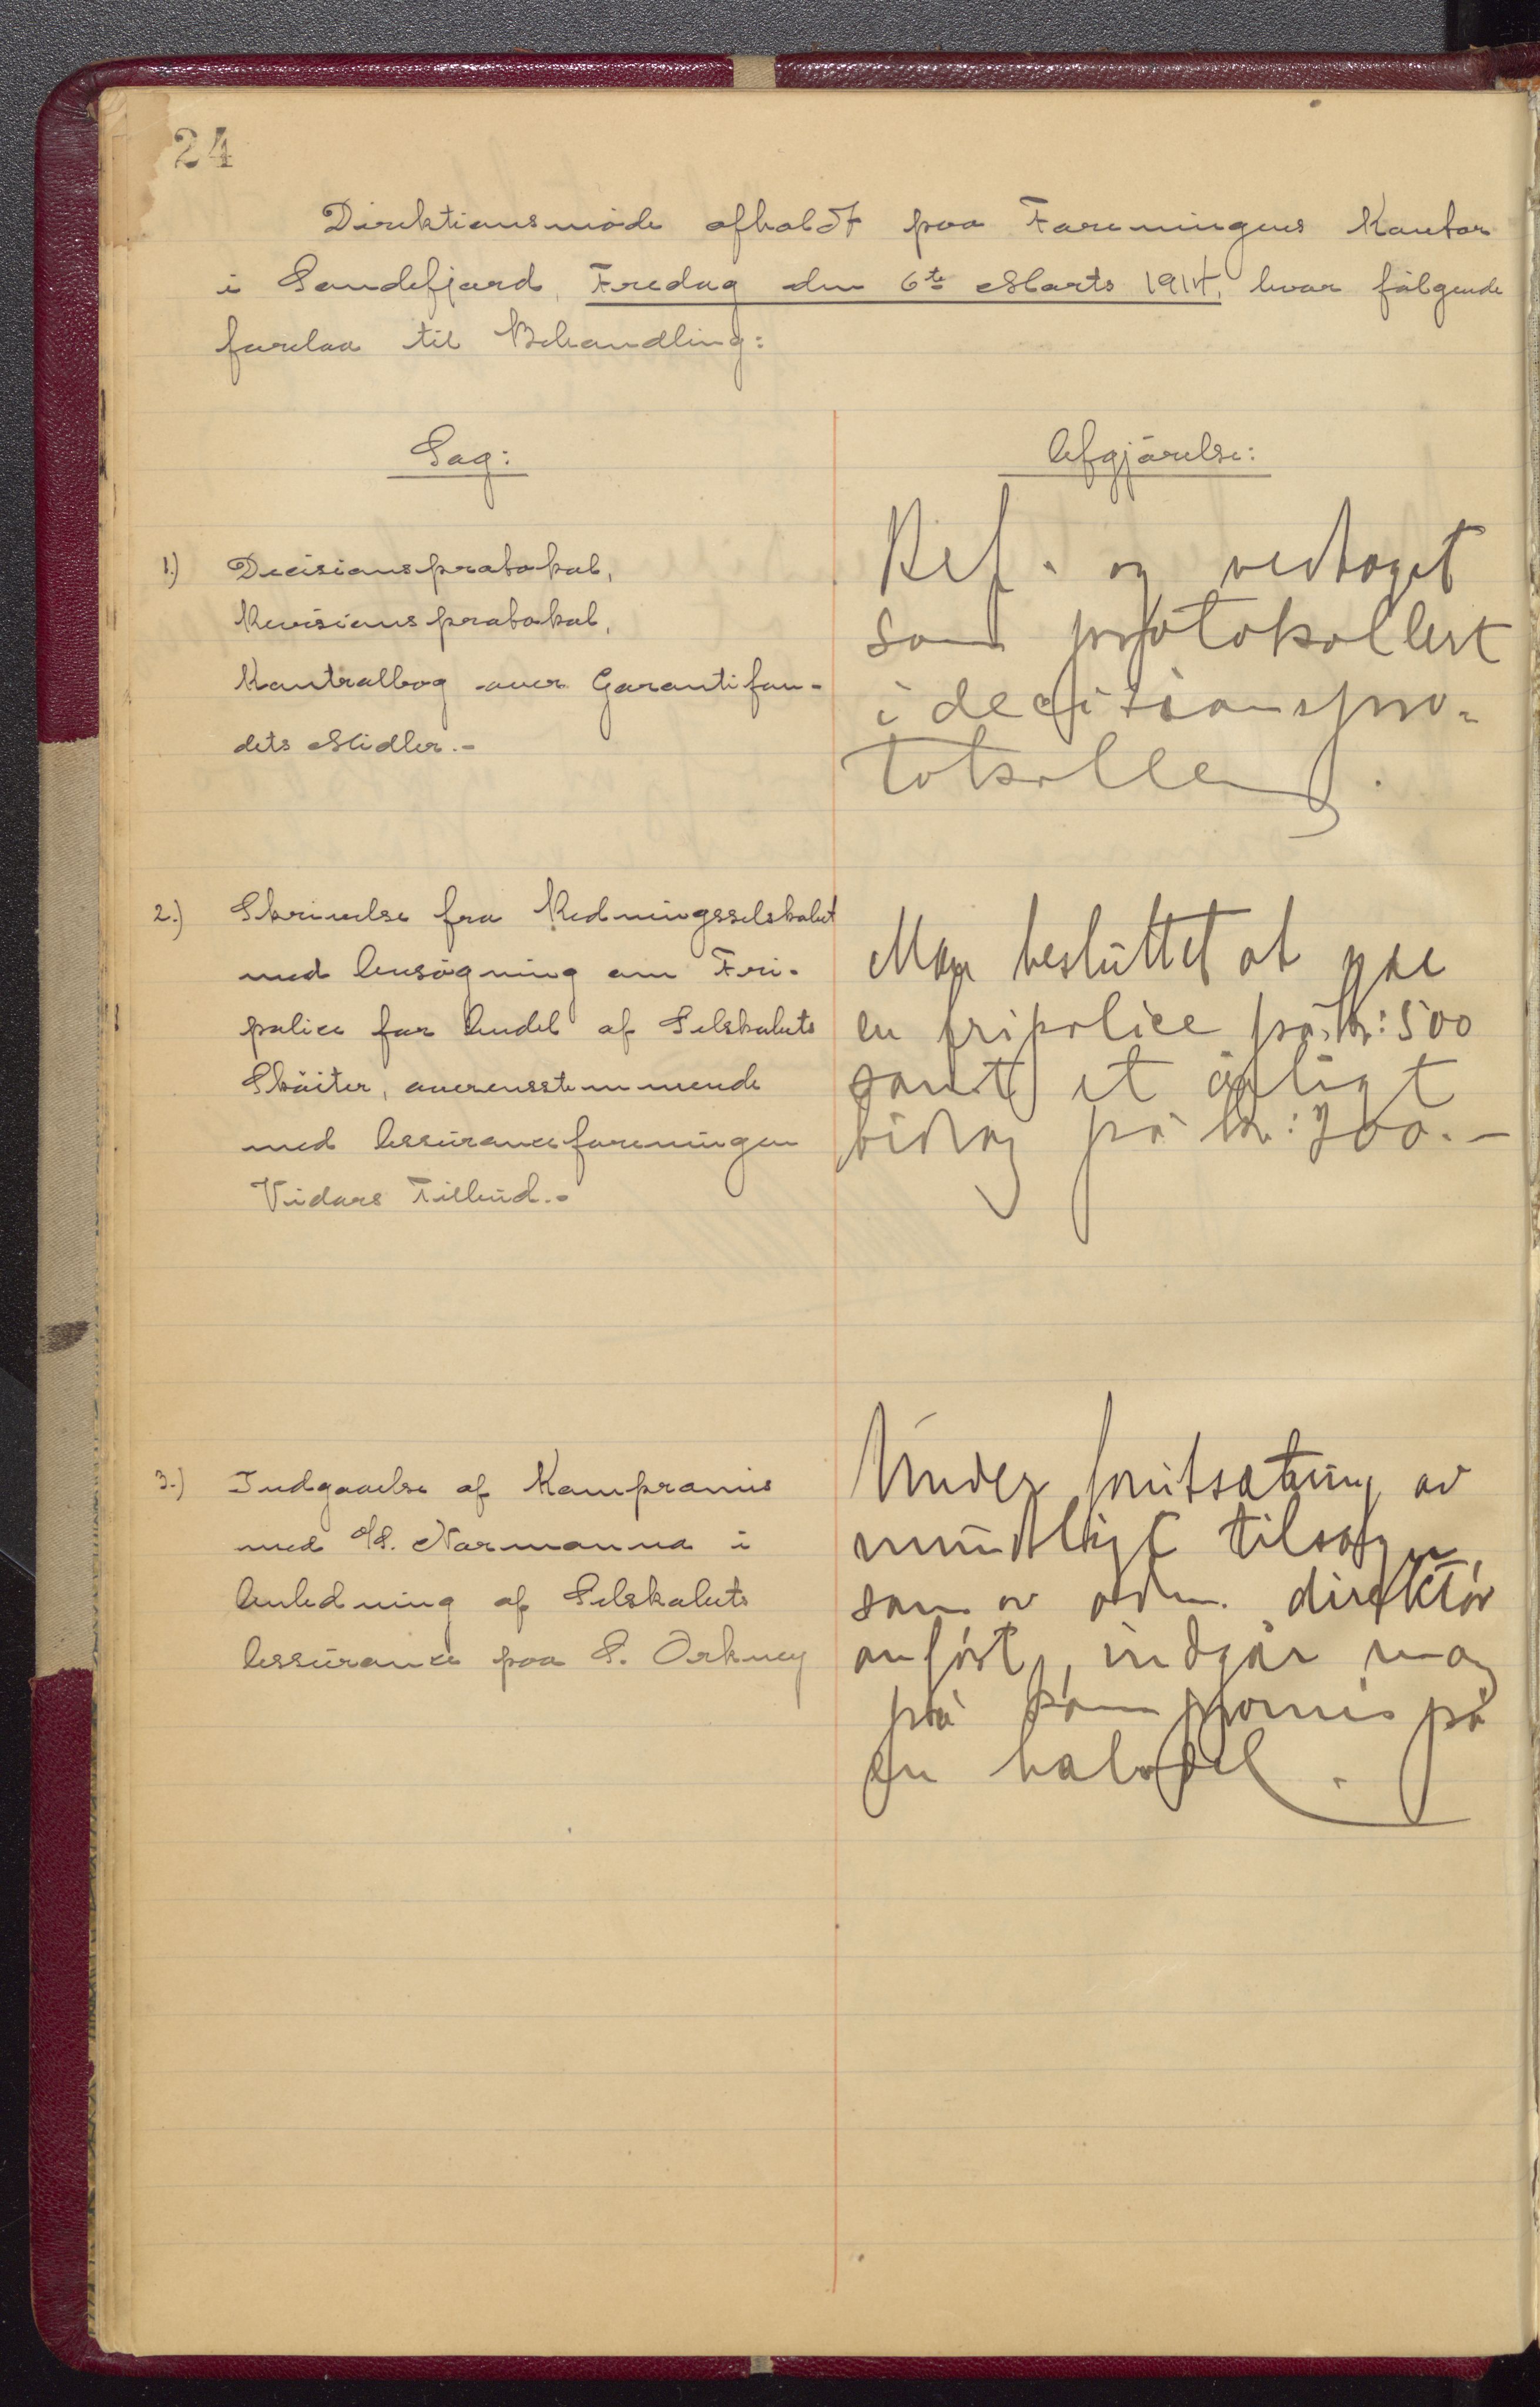 24
Direktionsmöde afholdt paa Foreningens Kontor
i Sandefjord, Fredag den 6te Marts 1914, hvor fölgende
forelaa til Behandling:
Sag:
Afgjörelse:
1.) Decisionsprotokol,
Revisionsprotokol,
Kontrolbog over Garantifon-
dets Midler.-
Ref. og vedtaget
som protokollert
i decisionspro-
tokollen.
2.) Skrivelse fra Redningsselskabet
med Ansögning om Fri-
police for Andel af Selskabets
Sköiter, overensstemmende
med Assuranceforeningen
Vidars Tilbud.-
Man besluttet at gae
en fripolice på kr: 500
samt et årligt
bidrag på kr: 700.-
3.) Indgaaelse af Kompromis
med A/S. Normanna i
Anledning af Selskabets
Assurance paa S. Orkney
Under forutsætning av
mundtligt tilsagn,
som av adm. direktör
anfört, indgår man
på kompromis på
en halvdel.